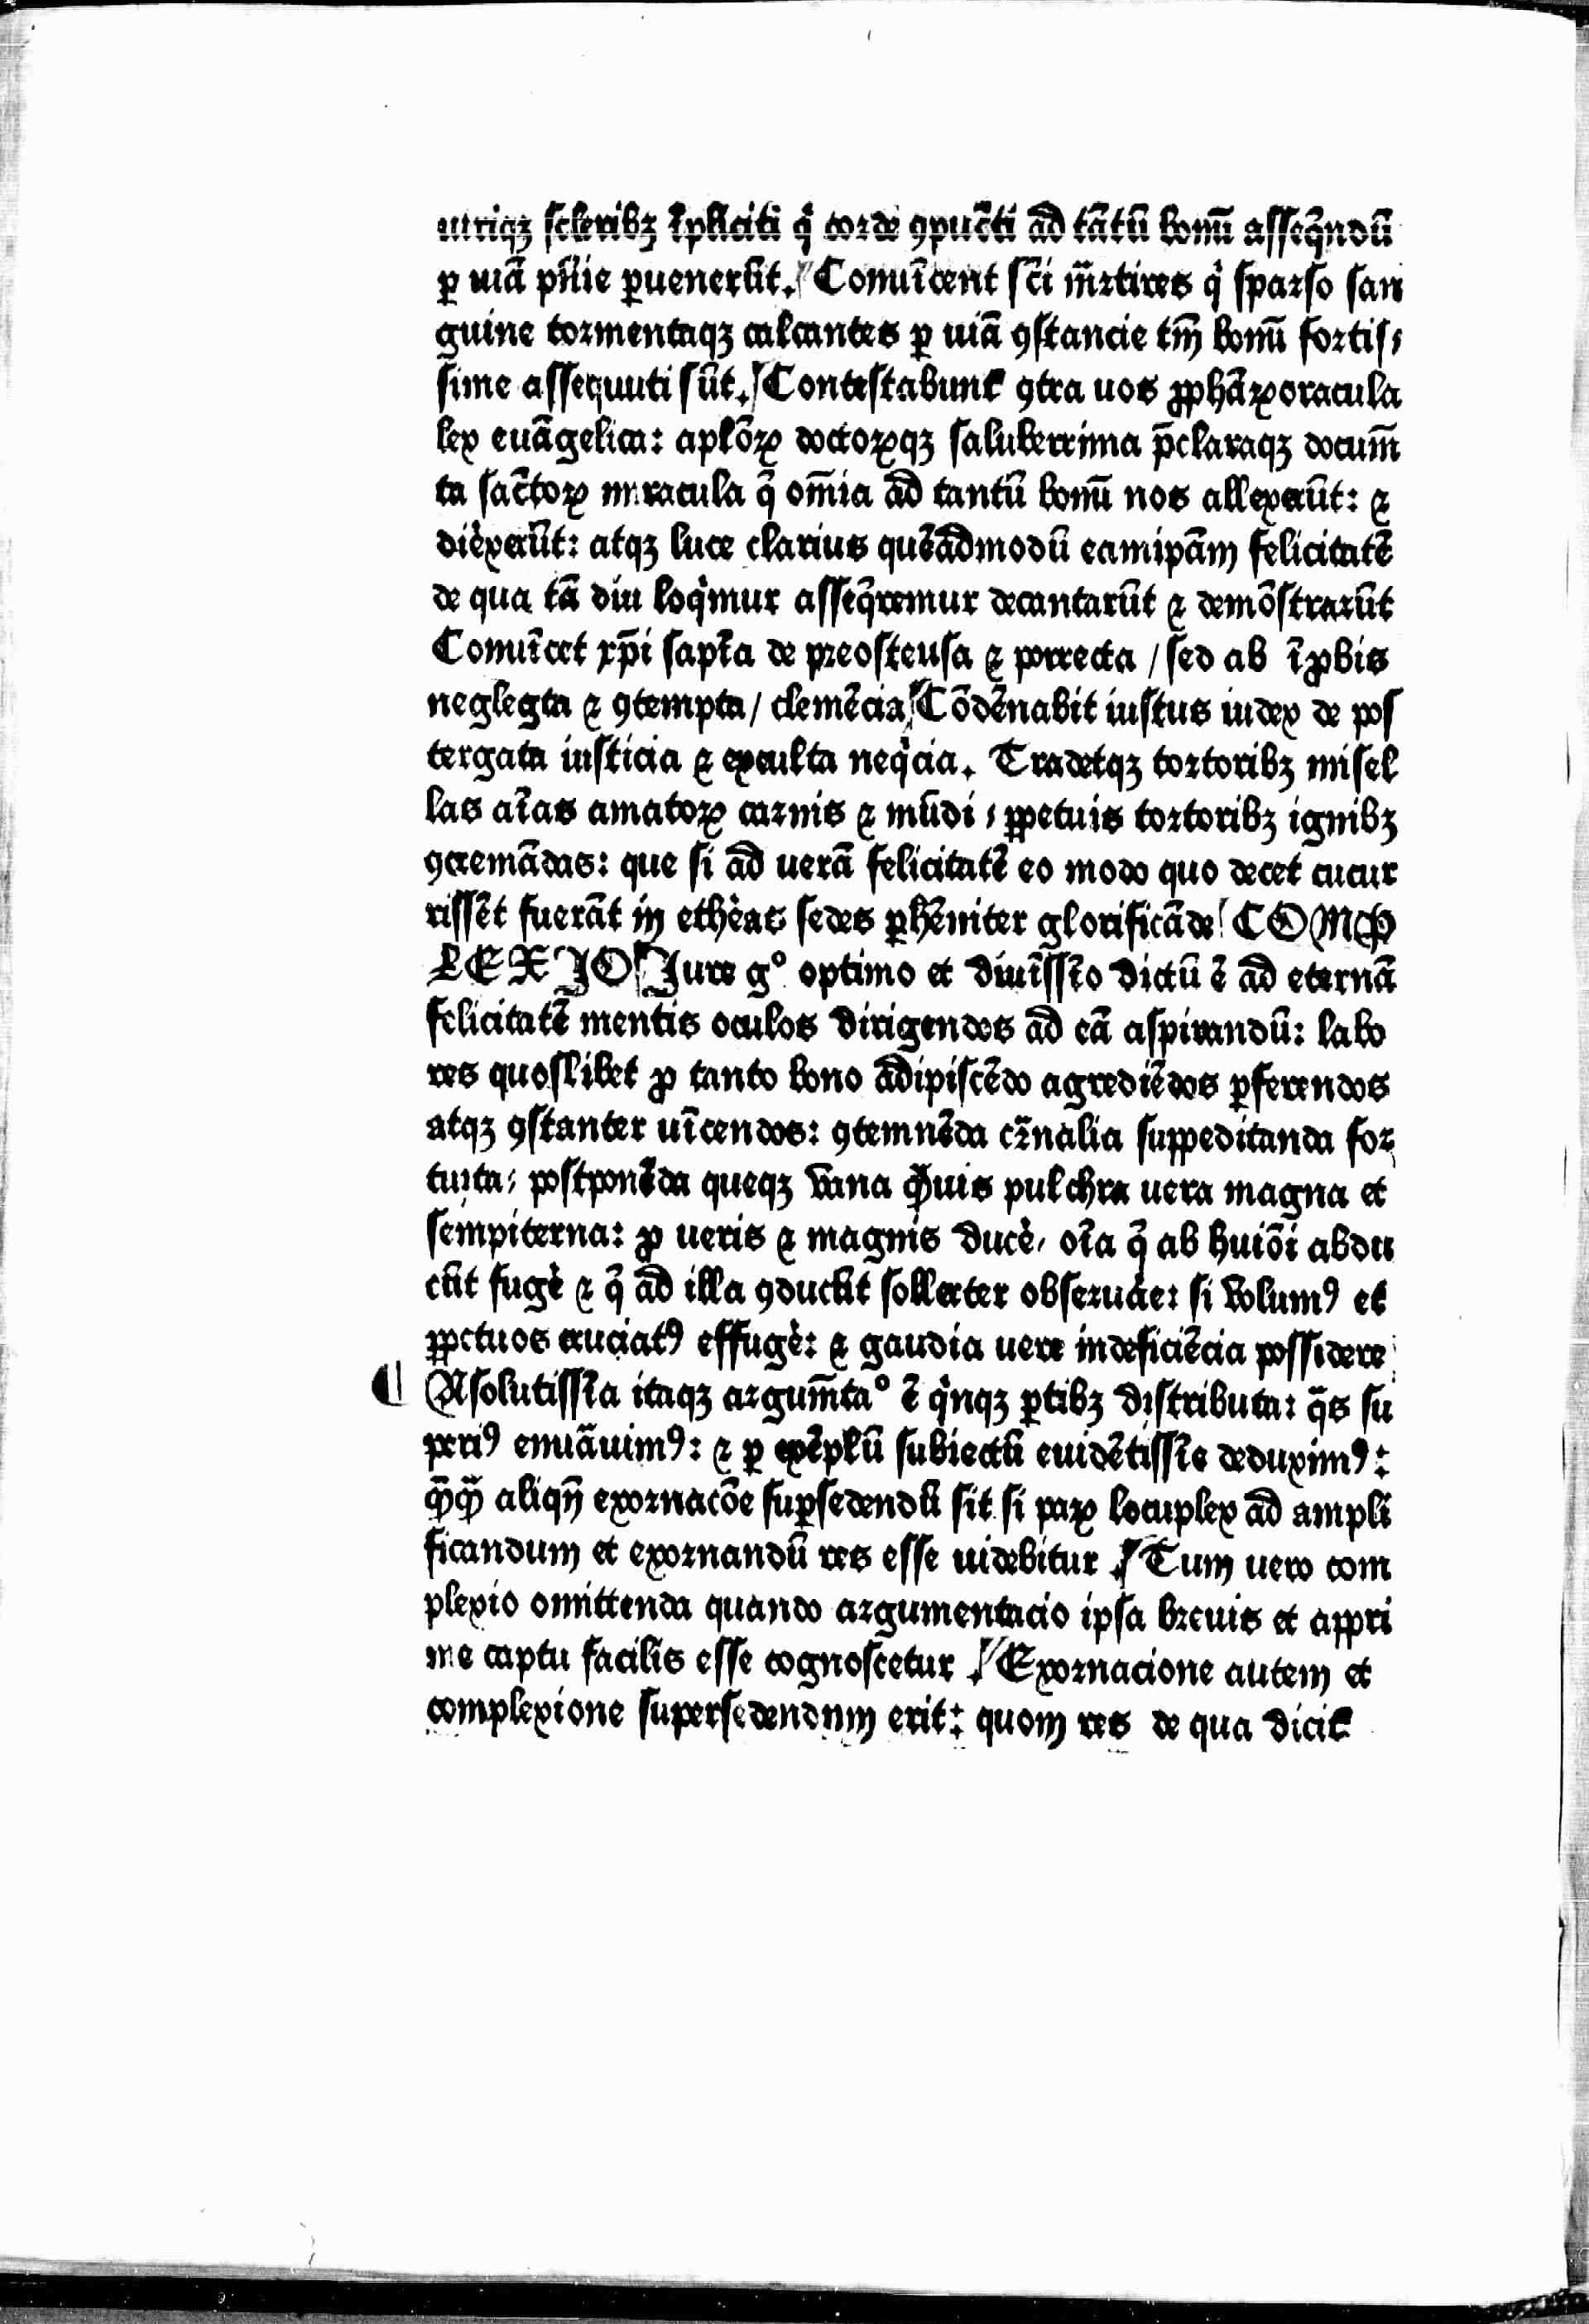 utriqꝫ sceleribꝫ ĩpliciti qͥ corde ꝯpũcti ad tãtũ bonũ asseq̃ndũ
ꝑ uiã pñie ꝑuenerũt. Conuĩcent sc̃i m̃rtires qͥ sparso san
guine tormentaqꝫ calcantes ꝑ uiã ꝯstancie tm̃ bonũ fortis⸗
sime assequuti sũt. Contestabunt̉ ꝯtra uos ꝓphãꝝ oracula
lex euãgelica: apl̃oꝝ doctoꝝqꝫ saluberrima p̃claraqꝫ docum̃
ta sãctoꝝ miracula q̃ om̃ia ad tantũ bonũ nos allexerũt: ⁊
diẻxerũt: atqꝫ luce clarius quẽadmodũ eamip̃am felicitatẽ
de qua tã diu loqͥmur asseq̃remur decantarũt ⁊ demõstrarũt
Conuĩcet xp̃i sapĩa de preostensa ⁊ porrecta / sed ab ĩꝓbis
neglegta ⁊ ꝯtempta / clemẽcia Cõdẽnabit iustus iudex de pos
tergata iusticia ⁊ exculta neqͥcia. Tradetqꝫ tortoribꝫ misel
las aĩas amatoꝝ carnis ⁊ mũdi, ꝑpetuis tortoribꝫ ignibꝫ
ꝯcremãdas: que si ad uerã felicitatẽ eo modo quo decet cucur
rissẽt fuerãt in ethẻas sedes ꝑhẽniter glorificãde COMP
LEXIO Iure gͦ optimo et diuĩssĩo dictũ ẽ ad eternã
felicitatẽ mentis oculos dirigendos ad eã aspirandũ: labo
res quoslibet ꝓ tanto bono adipiscẽdo agrediẽdos ꝑferendos
atqꝫ ꝯstanter uĩcendos: ꝯtemnẽda cr̃nalia suppeditanda for
tuita, postponẽda queqꝫ vana Quis pulchra uera magna et
sempiterna: ꝓ ueris ⁊ magnis ducẻ, oĩa q̃ ab huiõi abdu
cũt fugẻ ⁊ q̃ ad illa ꝯducũt sollerter obseruãe: si volumꝰ et
ꝑpetuos cruciatꝰ effugẻ: ⁊ gaudia uere indeficiẽcia possidere
¶ Asolutissĩa itaqꝫ argum̃taͦ ẽ qͥnqꝫ ꝑtibꝫ distributa: q̃s su
periꝰ enuãuimꝰ: ⁊ ꝑ exẽplũ subiectũ euidẽtissĩe deduximꝰ:
q̃q̃ aliqñ exornacõe suꝑsedendũ sit si paꝝ locuplex ad ampli
ficandum et exornandũ res esse uidebitur Tum uero com
plexio omittenda quando argumentacio ipsa breuis et appri
me captu facilis esse cognoscetur Exornacione autem et
complexione supersedendum erit: quom res de qua dicit̉